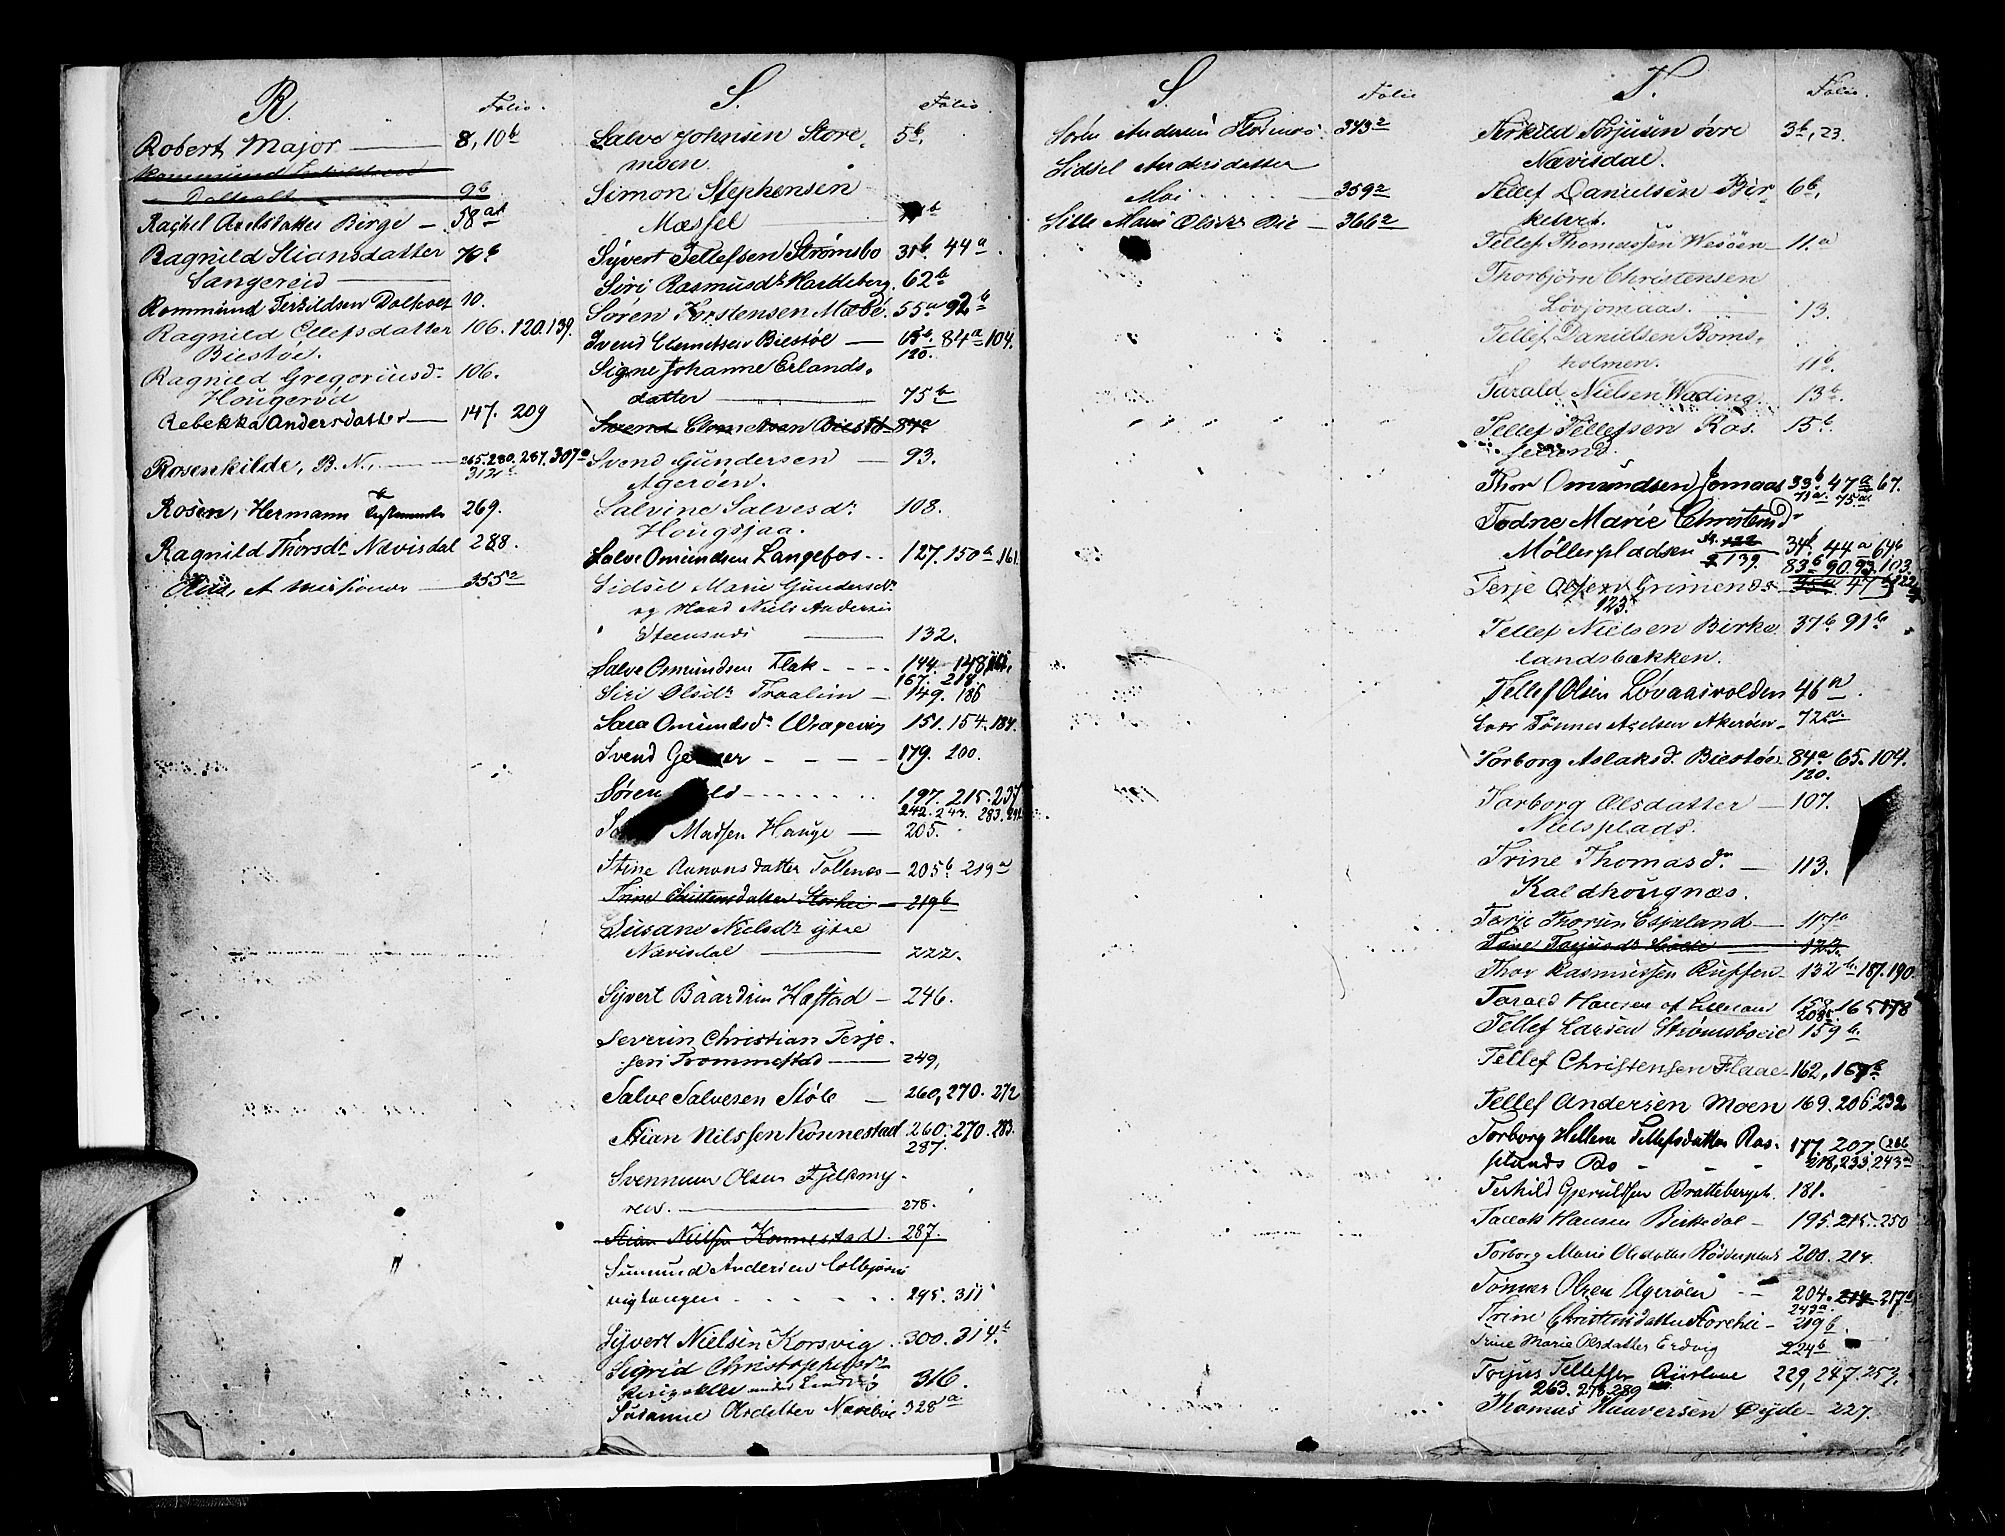 R. Folio.
Robert Major 8, 10b
Doltvolt 9b
Rachel Axelsdatter Birge 58a
Ragnild Stiansdatter 76b
Sangereid
Rommund Terkildsen Doltvet 10.
Ragnild Ellefsdatter 106. 120. 139.
Biestøl.
Ragnild Gregoriusdr 106.
Hougerød
Rebekka Andersdatter 147. 209
Rosenkilde, B. N., 265. 280. 287. 307a
312a
Rosen, Hermann 269.
Ragnild Thorsdr Nævisdal 288.
355a
S. Folio
Salve Johnsen Store 5b,
moen.
Simon Stephensen
Mæssel
Syvert Tellefsen Strømsbo 31b 44a.
Siri Rasmusdr Harkeberg 62b
Søren Torstensen Mæbø 55a 92b
Svend Clemetsen Biestøl 65b 84a 104.
120.
Signe Johanne Erlands-
datter 75b
Svend Clemetsen Biestøl 84a
Svend Gundersen 93.
Agerøen.
Salvine Salvesdr 108.
Hougsjaa.
Salve Omundsen Langefos 127. 150a 161.
Sidsel Marie Gundersdr
og Mand Niels Andersen
Steensnæs 132.
Salve Osmundsen Flak 144. 148.
167. 218.
Siri Olsdr Traalum 149. 186
Sara Omundsdr Vragevig 151. 154. 184.
Svend 179. 200.
Søren 197. 215. 237
242. 247. 283. 291
Madsen Hauge 205.
Stine Aanonsdatter Tollenæs 205b 219a
Trine Christensdatter Storhei 219b
Susane Nielsdr ytre
Nævisdal 222.
Syvert Baardsen Hæstad 246.
Severin Christian Terje-
sen Trommestad 249,
Salve Salvesen Støle 260, 270. 272
Stian Nilssen Konnestad 260. 270. 283.
287.
Svennum Olsen Fjeldmy-
ren. 278.
Stian Nielsen Konnestad. 287.
Sumund Andersen Colbjørns
vigtangen 295. 311
Syvert Nielsen Korsvig 300. 314b
Sigrid Christophersdr
under 316.
Susanne Olsdatter Næsebøe 328a
S. Folio
Søren Andersen 343a
Sidsel Andersdatter
Moi 359a
Sille Marie Olsdr Bie 366a
T. Folio.
Terkild Torjusen øvre 3b, 23.
Nævisdal.
Tellef Danielsen Bir- 6b,
ketvet.
Tellef Thomassen Wesøen 11a
Thorbjørn Christensen
Løvjomaas. 13.
Tellef Danielsen Boms-
holmen. 11b.
Tarald Nielsen Wading. 13b.
Tellef Tellefsen Ros. 15b.
feland.
Thor Omundsen Jomaas 33b 47a 67.
71a. 75a.
Todne Marie Christendr
Möllerpladsen 34b. 44a 64b
139. 83b 90. 93. 103.
Terje Olsen Grimenæs 47b 122
123.
Tellef Nielsen Birke 37b 91b
landsbækken.
Tellef Olsen Løvaasvolden 46a.
Lars Tønnes Axelsen Akerøen 72a.
Torborg Aslaksd. Biestøl 84a 65. 104.
120.
Tarborg Olsdatter 107.
Nielsplads.
Trine Thomasdr 113.
Kaldhougnæs.
Tarje Thorsen Espeland 117a
Trine Torjusdr 123.
Thor Rasmussen Ruffen 132b. 187. 190.
Tarald Hansen af Lillesand 158. 165 178
208.
Tellef Larsen Strømsboeie 159b.
Tellef Christensen Flaae 162, 167b
Tellef Andersen Moen 169. 206. 232
Torborg Hellene Tellefsdatter Ros- 177. 207.
218, 233. 243a
Terkild Gjeruldsen 181.
Tallak Hansen Birkedal 195. 215. 250
Torborg Marie Olsdatter 200. 214.
Tønnes Olsen Agerøen 204. 214. 217a
243a.
Trine Christensdatter Storehei 219b.
Trine Marie Olsdatter Eidvig 224b
Torjus Tellefsen 229, 247. 253.
263. 278. 289
Thomas Haaversen Øyde 227.